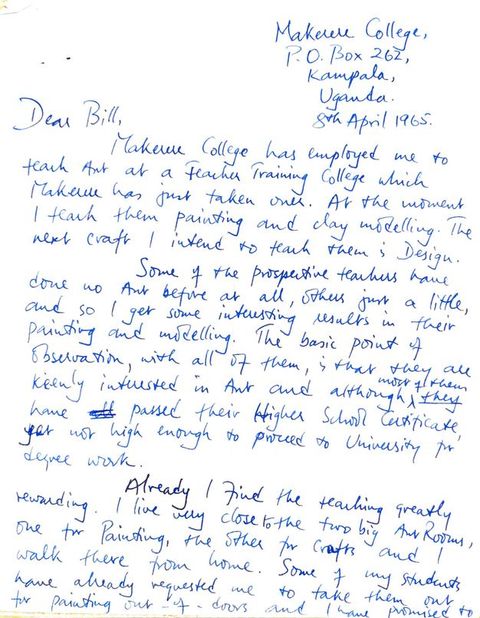 Makerere College,
P.O. Box 262,
Kampala,
Uganda.
8th April 1965.
Dear Bill,
Makerere College has employed me to
teach Art at a Teacher Training College which
Makerere has just taken over. At the moment
I teach them painting and clay modelling. The
next craft I intend to teach them is Design.
Some of the prospective teachers have
done no Art before at all, others just a little,
and so I get some interesting results in their
painting and modelling. The basic point of
observation, with all of them, is that they are
keenly interested in Art and although most of them
have passed their Higher School Certificate,
yet not high enough to proceed to University for
degree work.
Already I find the teaching greatly
rewarding. I live very close to the two big Art Rooms,
one for Painting, the other for Crafts and I
walk there from home. Some of my students
have already requested me to take them out
for painting out-of-doors and I have promised to